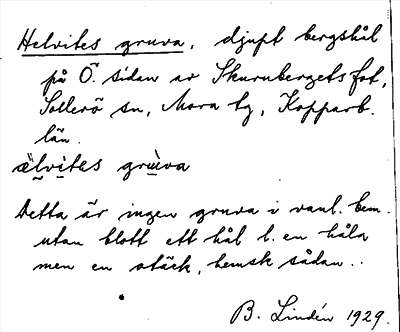 Helvites gruva, djupt bergshål
på Ö. sidan av Skurubergets fot,
Sollerö sn, Mora tg, Kopparb.
län.
ä̀lvìtes grùva
Detta är ingen gruva i vanl. bem.
utan blott ett hål l. en håla
men en otäck, hemsk sådan..
B. Lindén 1929.